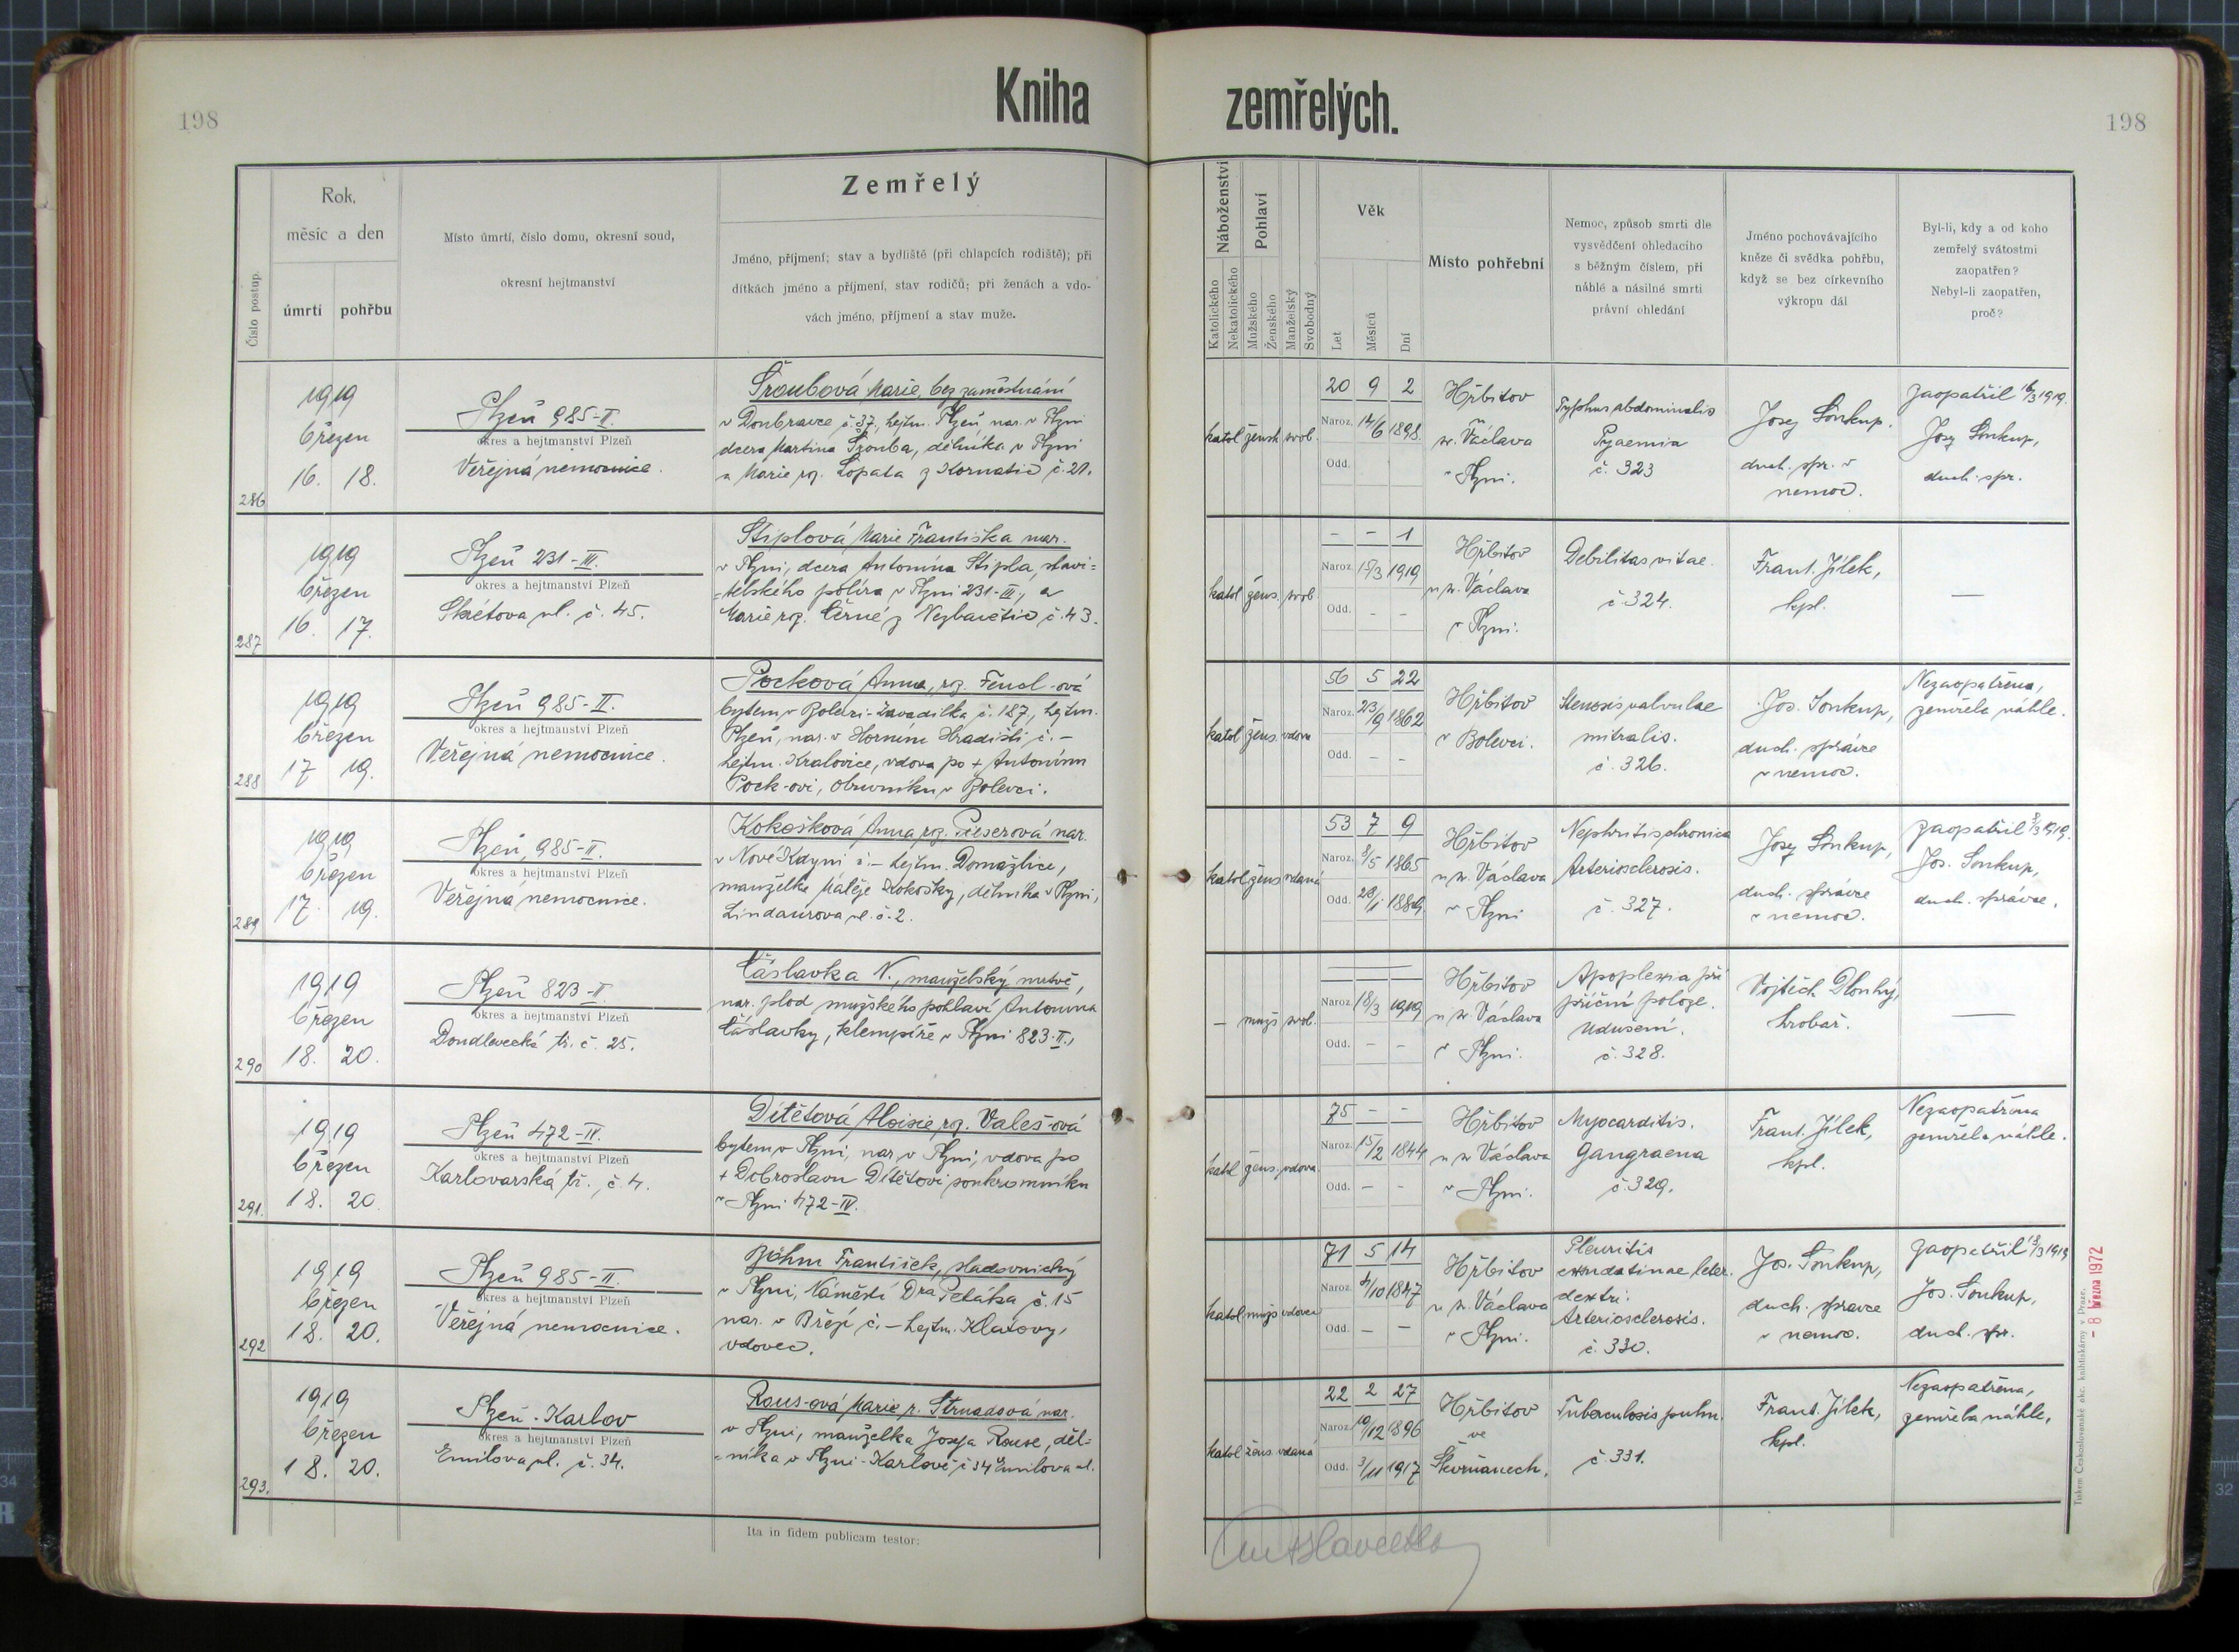 198
Kniha
zemřelých.
198
Číslo postup.
Rok,
měsíc a den
úmrtí
pohřbu
Místo úmrtí, číslo domu, okresní soud,
okresní hejtmanství
Zemřelý
Jméno, příjmení; stav a bydliště (při chlapcích rodiště); při
dítkách jméno a příjmení, stav rodičů; při ženách a vdo-
vách jméno, příjmení a stav muže.
Náboženství
Katolického
Nekatolického
Pohlaví
Mužského
Ženského
Manželský
Svobodný
Věk
Let
Měsíců
Dní
Místo pohřební
Nemoc, způsob smrti dle
vysvědčení ohledacího
s běžným číslem, při
náhlé a násilné smrti
právní ohledání
Jméno pochovávajícího
kněze či svědka pohřbu,
když se bez církevního
výkropu dál
Byl-li, kdy a od koho
zemřelý svátostmi
zaopatřen?
Nebyl-li zaopatřen,
proč?
286
1919
březen
16. 18.
Plzeň 985-II.
okres a hejtmanství Plzeň
Veřejná nemocnice.
Šroubová Marie, bez zaměstnání
v Doubravce č. 37, hejtm. Plzeň, nar. v Plzni
dcera Martina Šrouba, dělníka v Plzni
a Marie roz. Lopata z Kornatic č. 21.
katol žensk svob.
20 9 2
Naroz. 14/6 1898.
Odd.
Hřbitov
u
sv. Václava
v Plzni.
Typhus abdominalis
Pyaemia
č. 323
Josef Soukup.
duch. spr. v
nemoc.
zaopatřil 16/3 1919.
Josef Soukup,
duch. spr.
287
1919
březen
16. 17.
Plzeň 231-III.
okres a hejtmanství Plzeň
Skrétova ul. č. 45.
Stiplová Marie Františka nar.
v Plzni, dcera Antonína Stipla, stavi=
=telského políra v Plzni 231-III, a
Marie roz. Černé z Nezbavětic č. 43.
katol žens. svob
- - 1
Naroz. 15/3 1919
Odd. - -
Hřbitov
u sv. Václava
v Plzni.
Debilitas vitae.
č. 324.
Frant. Jílek,
kpl.
—
288
1919
březen
17 19.
Plzeň 985-II.
okres a hejtmanství Plzeň
Veřejná nemocnice.
Pocková Anna, roz. Fencl-ová
bytem v Bolevci-Zavadilka č. 187, hejtm.
Plzeň, nar. v Horním Hradišti č. -
hejtm. Kralovice, vdova po + Antonínu
Pock-ovi, obuvníku v Bolevci.
katol žens. vdova
56 5 22
Naroz. 23/9 1862
Odd. - -
Hřbitov
v Bolevci.
Stenosis valvulae
mitralis.
č. 326.
Jos. Soukup,
duch. správce
v nemoc.
Nezaopatřena,
zemřela náhle.
289
1919
březen
17. 19.
Plzeň, 985-II.
okres a hejtmanství Plzeň
Veřejná nemocnice.
Kokošková Anna roz. Pieserová nar.
v Nové Kdyni č. - hejtm. Domažlice,
manželka Matěje Kokošky, dělníka v Plzni,
Lindaurova ul. č. 2.
katol žens vdaná
53 7 9
Naroz. 8/5 1865
Odd. 28/1 1889.
Hřbitov
u sv. Václava
v Plzni
Nephritis chronica
Arteriosclerosis.
č. 327.
Josef Soukup,
duch. správce
v nemoc.
zaopatřil 8/3 1919.
Jos. Soukup,
duch. správce.
290
1919
březen
18. 20.
Plzeň 823-II
okres a hejtmanství Plzeň
Doudlevecká tř. č. 25.
Čáslavka N., manželský mrtvě,
nar. plod mužského pohlaví Antonína
Čáslavky, klempíře v Plzni 823-II.,
- mužs svob.
Naroz. 18/3 1919
Odd. - -
Hřbitov
u sv. Václava
v Plzni.
Apoplexia při
příční poloze.
Udušení.
č. 328.
Vojtěch Dlouhý,
hrobař.
—
291.
1919
březen
18. 20
Plzeň 472-IV.
okres a hejtmanství Plzeň
Karlovarská tř. č. 4.
Dítětová Aloisie, roz. Valeš-ová
bytem v Plzni, nar. v Plzni, vdova po
+ Dobroslavu Dítětovi soukromníku
v Plzni 472-IV.
katol žens. vdova
75 - -
Naroz. 15/2 1844
Odd. - -
Hřbitov
u sv Václava
v Plzni.
Myocarditis.
Gangraena
č. 329.
Frant. Jílek,
kpl.
Nezaopatřena
zemřela náhle.
292
1919
březen
18. 20.
Plzeň 985-II.
okres a hejtmanství Plzeň
Veřejná nemocnice.
Böhm František, sladovnický
v Plzni, Náměstí Dra Petáka č. 15
nar. v Břéjí č. - hejtm. Klatovy,
vdovec.
katol mužs vdovec
71 5 14
Naroz. 4/10 1847
Odd. - -
Hřbitov
u sv. Václava
v Plzni.
Pleuritis
exudatinae later.
dextri.
Arteriosclerosis.
č. 330.
Jos. Soukup,
duch. správce
v nemoc.
zaopatřil 18/3 1919
Jos. Soukup,
duch. spr.
293.
1919
březen
18. 20.
Plzeň-Karlov
okres a hejtmanství Plzeň
Emilova ul. č. 34.
Rous-ová Marie r. Strnadová nar.
v Plzni, manželka Josefa Rouse, děl=
=níka v Plzni-Karlově č 34 Emilova ul.
katol žens vdaná
22 2 27
Naroz. 10/12 1896
Odd. 3/11 1917
Hřbitov
ve
Skvrňanech.
Tuberculosis pulm.
č. 331.
Frant. Jílek,
kpl.
Nezaopatřena,
zemřela náhle,
Ita in fidem publicam testor:
Tiskem Českoslovanské akc. knihtiskárny v Praze.
- 8 března 1972